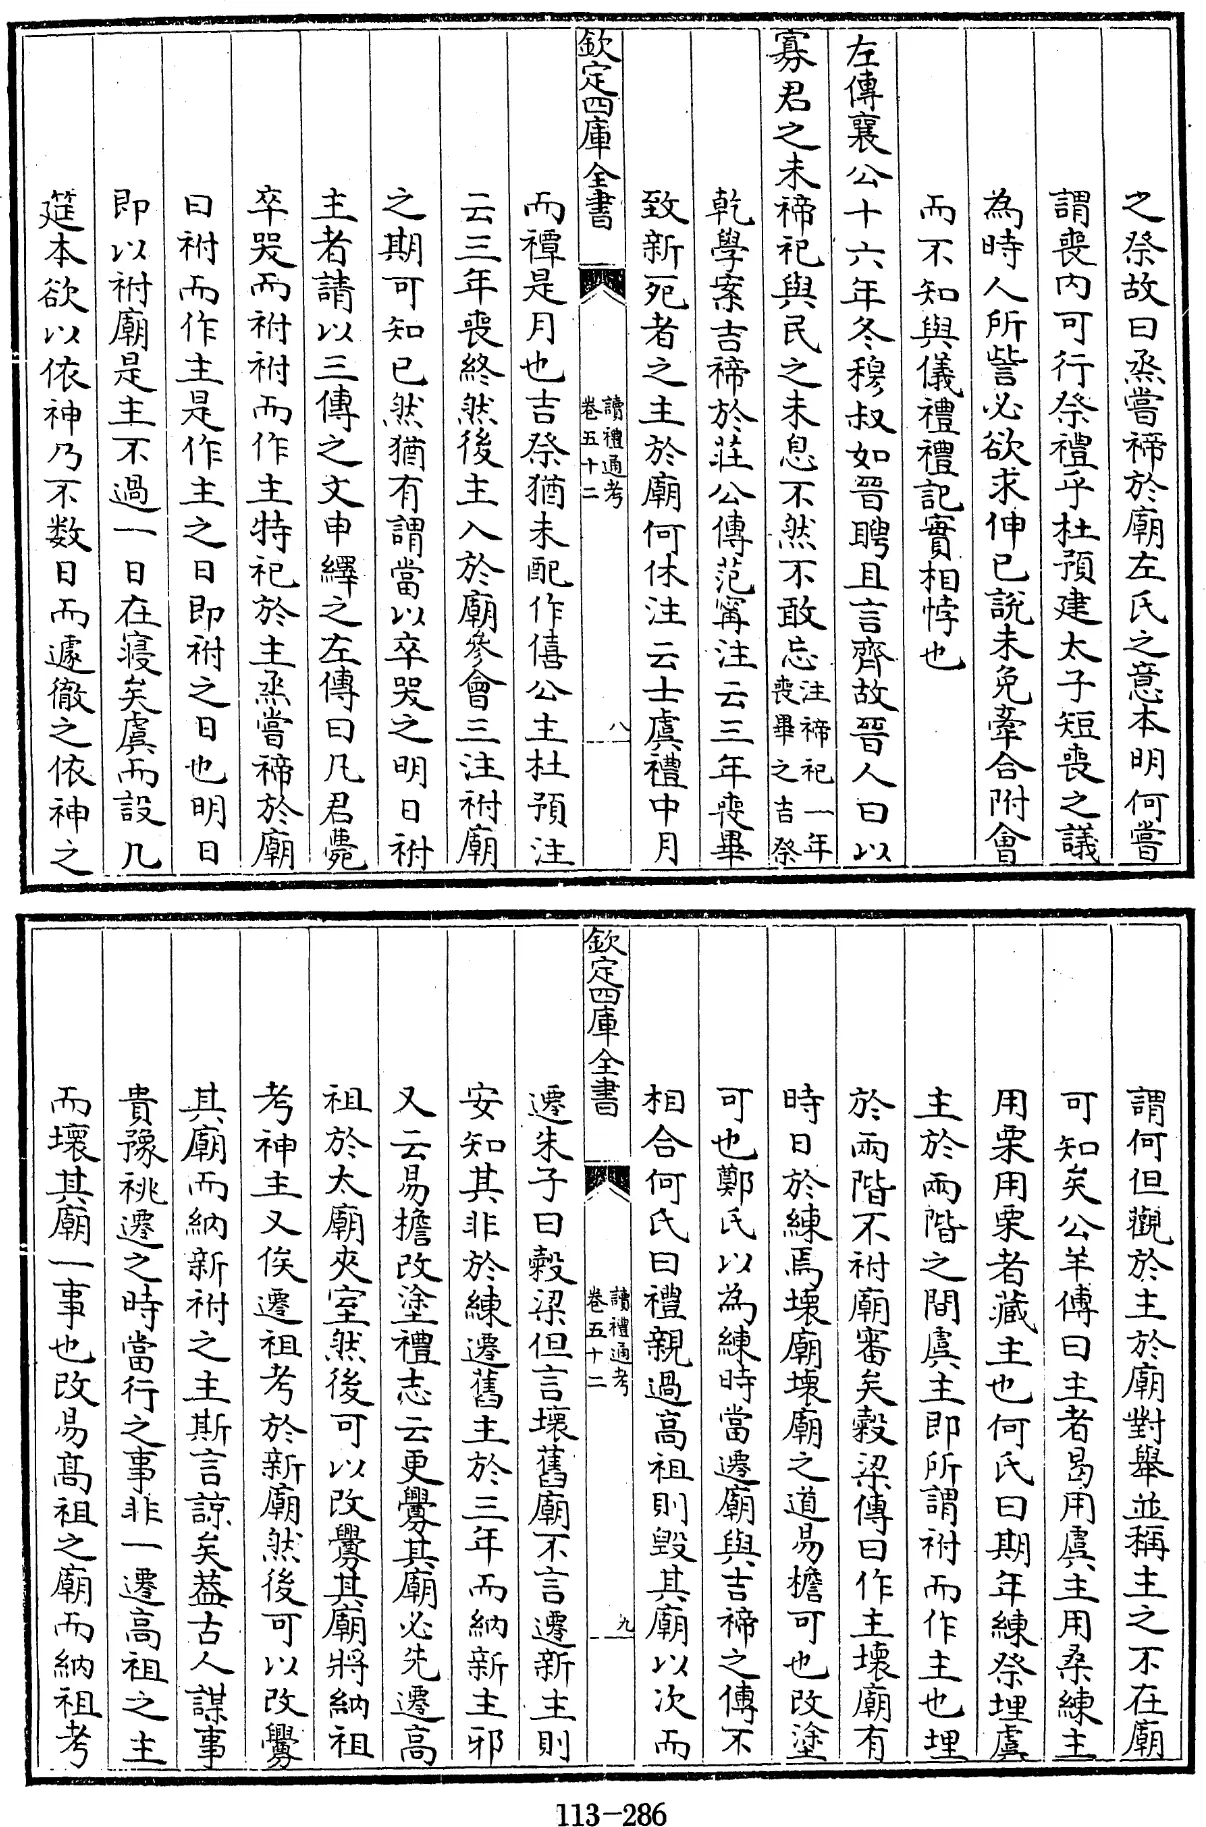 之祭故曰烝嘗禘於廟左氏之意本明何嘗
謂喪内可行祭禮乎杜預建太子短喪之議
為時人所訾必欲求伸已説未免牽合附會
而不知與儀禮禮記實相悖也
左傳襄公十六年冬穆叔如晉聘且言齊故晉人曰以
寡君之未禘祀與民之未息不然不敢忘注禘祀一年喪畢之吉祭
乾學案吉禘於莊公傳范寗注云三年喪畢
致新死者之主於廟何休注云士虞禮中月
欽定四庫全書
讀禮通考
卷五十二
八
而禫是月也吉祭猶未配作僖公主杜預注
云三年喪終然後主入於廟參會三注祔廟
之期可知已然猶有謂當以卒哭之明日祔
主者請以三傳之文申繹之左傳曰凡君薨
卒哭而祔祔而作主特祀於主烝嘗禘於廟
曰祔而作主是作主之日即祔之日也明日
即以祔廟是主不過一日在寢矣虞而設几
筵本欲以依神乃不数日而遽徹之依神之
謂何但觀於主於廟對舉並稱主之不在廟
可知矣公羊傳曰主者曷用虞主用桑練主
用栗用栗者藏主也何氏曰期年練祭埋虞
主於兩階之間虞主即所謂祔而作主也埋
於兩階不祔廟審矣穀梁傳曰作主壞廟有
時日於練焉壞廟壞廟之道易檐可也改塗
可也鄭氏以為練時當遷廟與吉禘之傳不
相合何氏曰禮親過高祖則毀其廟以次而
欽定四庫全書
讀禮通考
卷五十二
九
遷朱子曰穀梁但言壞舊廟不言遷新主則
安知其非於練遷舊主於三年而納新主邪
又云易檐改塗禮志云更釁其廟必先遷高
祖於太廟夾室然後可以改釁其廟將納祖
考神主又俟遷祖考於新廟然後可以改釁
其廟而納新祔之主斯言諒矣葢古人謀事
貴豫祧遷之時當行之事非一遷高祖之主
而壞其廟一事也改易髙祖之廟而納祖考
113-286